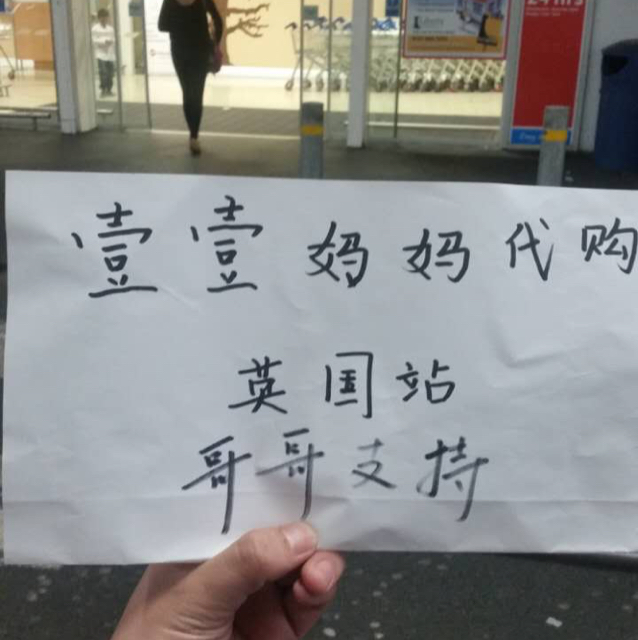 24 HRS
壹壹妈妈代购
英国站
哥哥支持